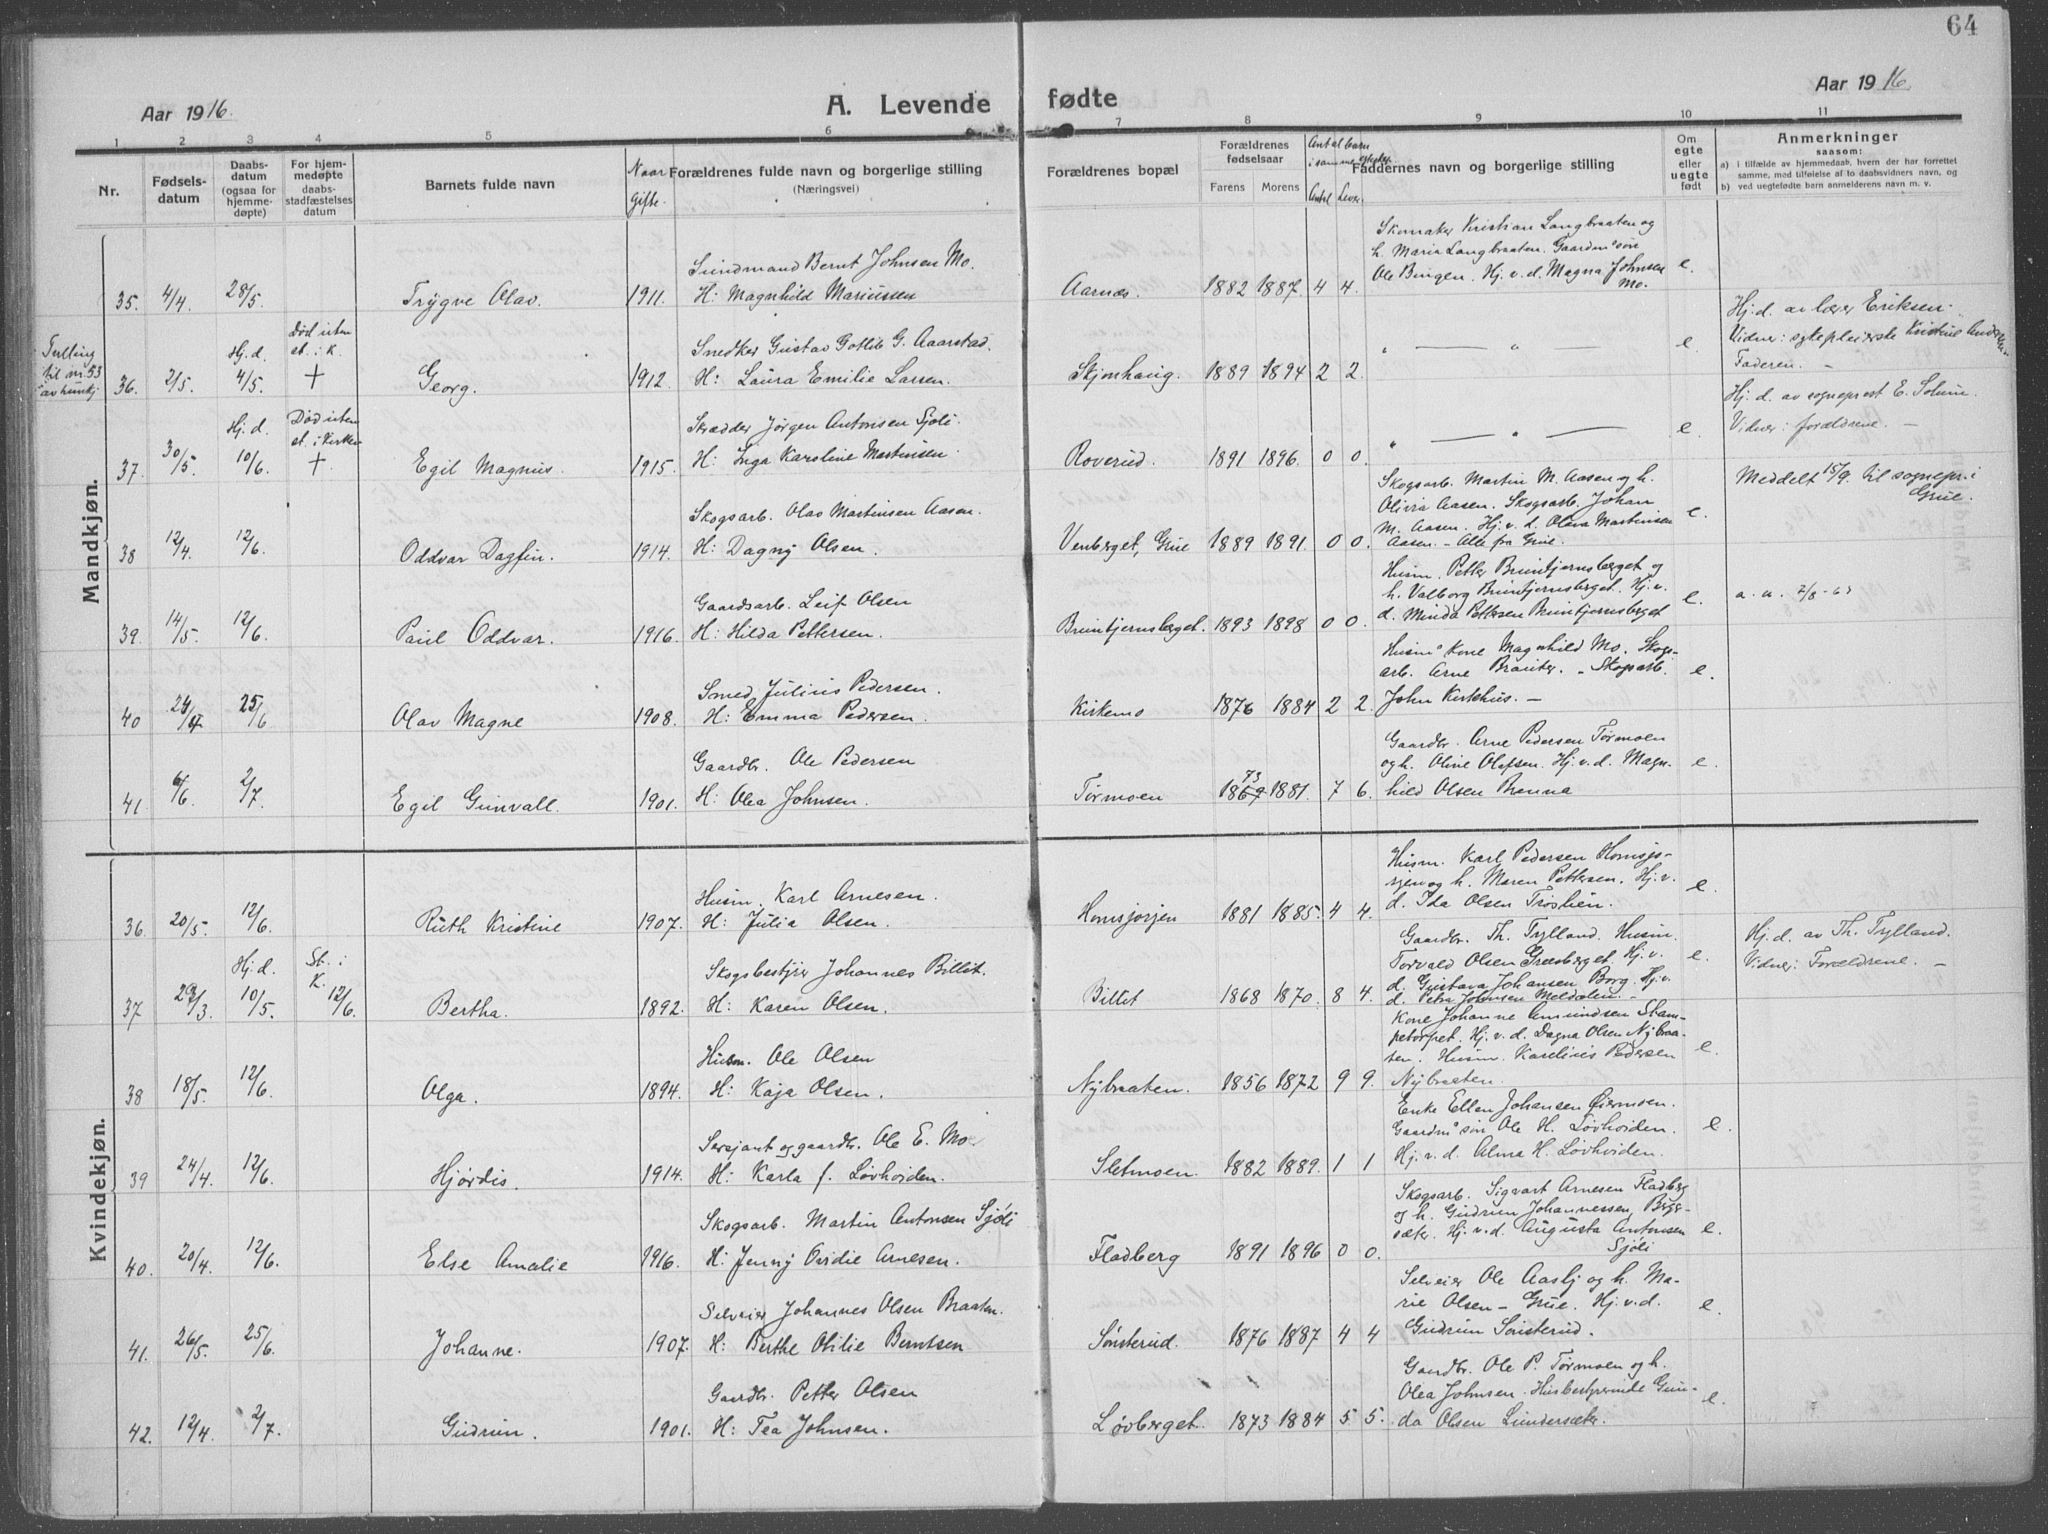 64
Aar 1916.
A. Levende fødte
Aar 1916.
1 2 3 4 5 6 7 8 9 10 11
Nr.
Fødselsdatum
Daabsdatum (ogsaa for hjemmedøpte)
For hjemmedøpte daabsstadfæstelses datum
Barnets fulde navn
Naar Gifte.
Forældrenes fulde navn og borgerlige stilling
(Næringsvei)
Forældrenes bopæl
Forældrenes fødselsaar
Farens Morens
Antal barn i samme egteskap
Antal Lever
Faddernes navn og borgerlige stilling
Om egte eller uegte født
Anmerkninger
saasom:
a) i tilfælde av hjemmedaab, hvem der har forrettet
samme, med tilføielse af to daabsvidners navn, og
b) ved uegtefødte barn anmelderens navn m. v.
Mandkjøn.
Skomaker Kristian Langbraaten og
h. Maria Langbraaten. Gaardm's søn
Sundmand Bernt Johnsen Mo.
Ole Bingen. Hj. v. d. Magna Johnsen
Mo.
35. 4/4. 28/5. Trygve Olav. 1911. H: Magnhild Mariussen Aarnæs. 1882 1887. 4 4. e.
Tvilling til nr. 53 av hunkj
Hj. d. av lærer Eriksen.
Vidner: sykepleierske Kristine Andersen.
Faderen. —
Død uten st. i K.
Snedker Gustav Gotlib G. Aarstad.
36. 2/5. Hj. d. 4/5. + Georg. 1912. H: Laura Emilie Larsen. Skjønhaug. 1889 1894 2 2. " — " — e.
Hj. d. av sogneprest E. Solum.
Vidner: forældrene. —
Død uten st. i Kirken
Skrædder Jørgen Antonsen Sjøli.
37. 30/5. Hj. d. 10/6. + Egil Magnus. 1915. H: Inga Karoline Martinsen. Roverud. 1891 1896. 0 0. " — " — e.
Skogsarb. Martin M. Aasen og h.
Olivia Aasen. Skogsarb. Johan
Skogsarb. Olav Martinsen Aasen.
M. Aasen. Hj. v. d. Olava Martinsen
Aasen. — Alle fra Grue.
38 12/4. 12/6. Oddvar Dagfin. 1914. H: Dagny Olsen. Venberget, Grue 1889 1891. 0 0. e.
Meddelt 15/9. til sognepr. i Grue.
Husm. Petter Bruntjernsberget og
h. Valborg Bruntjernsberget. Hj. v.
Gaardsarb. Leif Olsen
d. Minda Pettersen Bruntjernsberget
39. 14/5. 12/6. Paul Oddvar. 1916. H: Hilda Pettersen. Bruntjernsberget. 1893 1898 0 0. e.
Husm's Kone Magnhild Mo. Skogs-
arb. Arne Brauter. — Skogsarb.
Smed Julius Pedersen.
John Kirkhus. —
40 24/4 25/6 Olav Magne 1908. H: Emma Pedersen. Kirkemo 1876 1884 2 2. e.
Gaardbr. Arne Pedersen Tørmoen
og h. Oline Olafsen. Hj. v. d. Magn-
Gaardbr. Ole Pedersen
hild Olsen Brenna
41. 6/6. 2/7. Egil Gunvall. 1901. H: Olea Johnsen. Tørmoen 1869 73 1881. 7 6. e.
Kvindekjøn.
Husm. Karl Pedersen Homsjø-
sjen og h. Maren Pettersen. Hj. v.
Husm. Karl Arnesen.
d. Ida Olsen Troslien.
36. 20/5. 12/6. Ruth Kristine 1907. H: Julia Olsen. 1881 1885. 4 4. e.
Gaardbr. Th. Tylland. Husm.
Torvald Olsen Græsberget. Hj. v.
Skogsbestyrer Johannes Billit.
d. Gustava Johansen Borg. Hj. v.
d. Petra Johnsen Meldalen. —
37 29/3. Hj. d. 10/5. St. i K. 12/6. Bertha. 1892. H: Karen Olsen. Billet 1868 1870. 8 4. e.
Hj. d. av Th. Tylland.
Vidner: Forældrene. —
Kone Johanne Amundsen Stam-
petorpet. Hj. v. d. Dagna Olsen Nybraa-
ten. Husm. Karelius Pedersen
Husm. Ole Olsen
Nybraaten.
38 18/5. 12/6. Olga. 1894. H: Kaja Olsen. Nybraaten. 1856 1872 9 9. e.
Enke Ellen Johansen Øiermoen.
Gaardm's søn Ole H. Løvhøiden.
Sersjant og gaardbr. Ole E. Mo.
Hj. v. d. Alma H. Løvhøiden.
39 24/4. 12/6. Hjørdis. 1914. H: Karla f. Løvhøiden. Sletmoen. 1882 1889. 1 1 e.
Skogsarb. Sigvart Arnesen Fladberg
og h. Gudrun Johannessen, Berg-
Skogsarb. Martin Antonsen Sjøli
sæter. Hj. v. d. Augusta Antonsen
Sjøli
40. 20/4. 12/6. Else Amalie 1916. H: Jenny Ovidie Arnesen. Fladberg 1891 1896 0 0. e.
Selveier Ole Aasby og h. Ma-
rie Olsen — Grue. Hj. v. d.
Selveier Johannes Olsen Braaten.
Gudrun Sønsterud.
41. 26/5. 25/6. Johanne. 1907. H: Berthe Otilie Berntsen Sønsterud. 1876 1887 4 4 e.
Gaardbr. Ole P. Tørmoen og h.
Olea Johnsen. Husbestyrerinde Gun-
Gaardbr. Petter Olsen
da Olsen Lundersæter.
42. 12/4. 2/7. Gudrun. 1901. H: Tea Johnsen. Løvberget. 1873 1884 5 5. e.